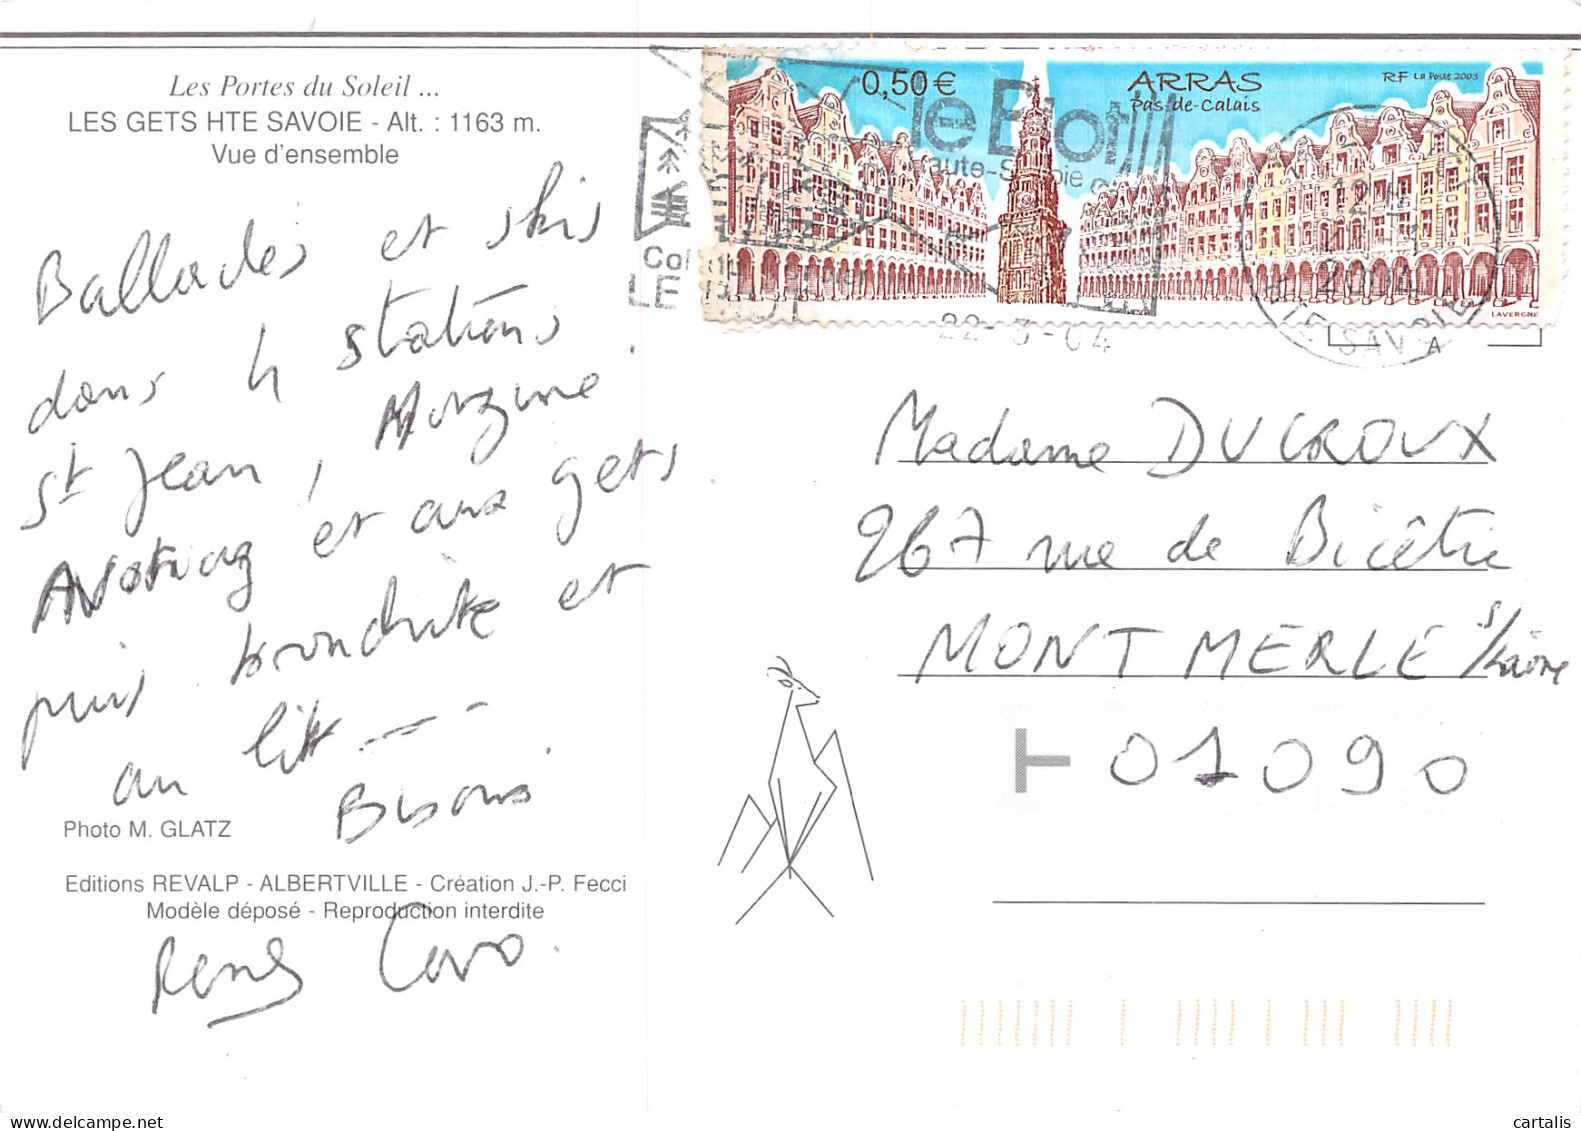 Les Portes du Soleil ...
LES GETS HTE SAVOIE - Alt. : 1163 m.
Vue d'ensemble
Ballades et skis
dans 4 stations
St Jean, Morzine
Avoriaz et aux gets
puis bronchite et
au litt ---
Bisous
Photo M. GLATZ
Editions REVALP - ALBERTVILLE - Création J.-P. Fecci
Modèle déposé - Reproduction interdite
0,50 €
ARRAS
Pas-de-Calais
RF La Poste 2003
LAVERGNE
le Biot
22-3-04
2004
SAVOIE
A
Madame DUCROUX
267 rue de Bicêtre
MONTMERLE s/Saône
01090
cartalis